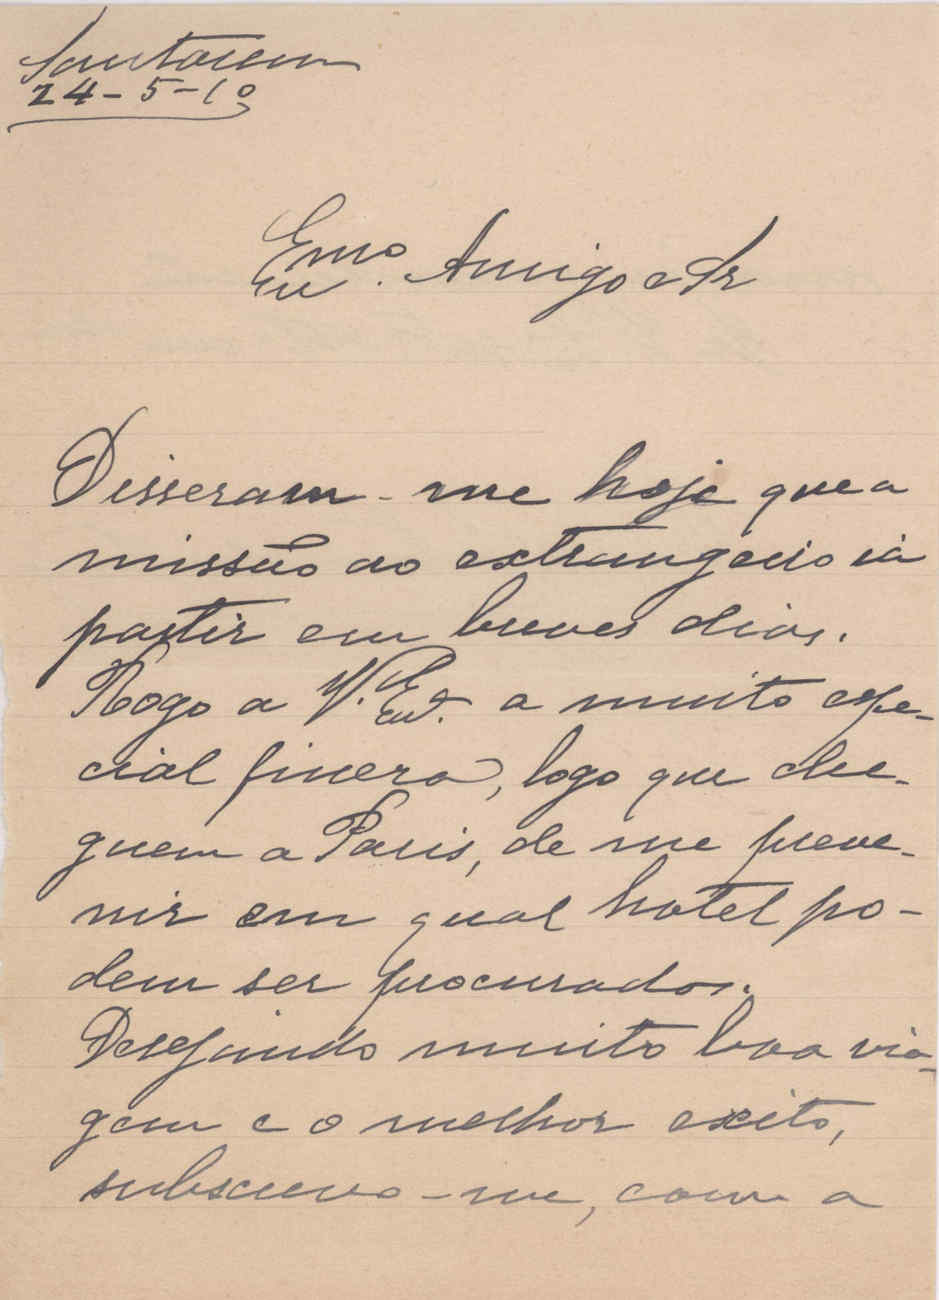 Santarem
24-5-10
Exmo. Amigo e Sr
Disseram-me hoje que a
missão ao extrangeiro ia
partir em breves dias.
Rogo a V. Ex. a muito espe-
cial fineza, logo que che-
guem a Paris, de me preve-
nir em qual hotel po-
dem ser procurados.
Desejando muito boa via-
gem e o melhor exito,
subscrevo-me, com a